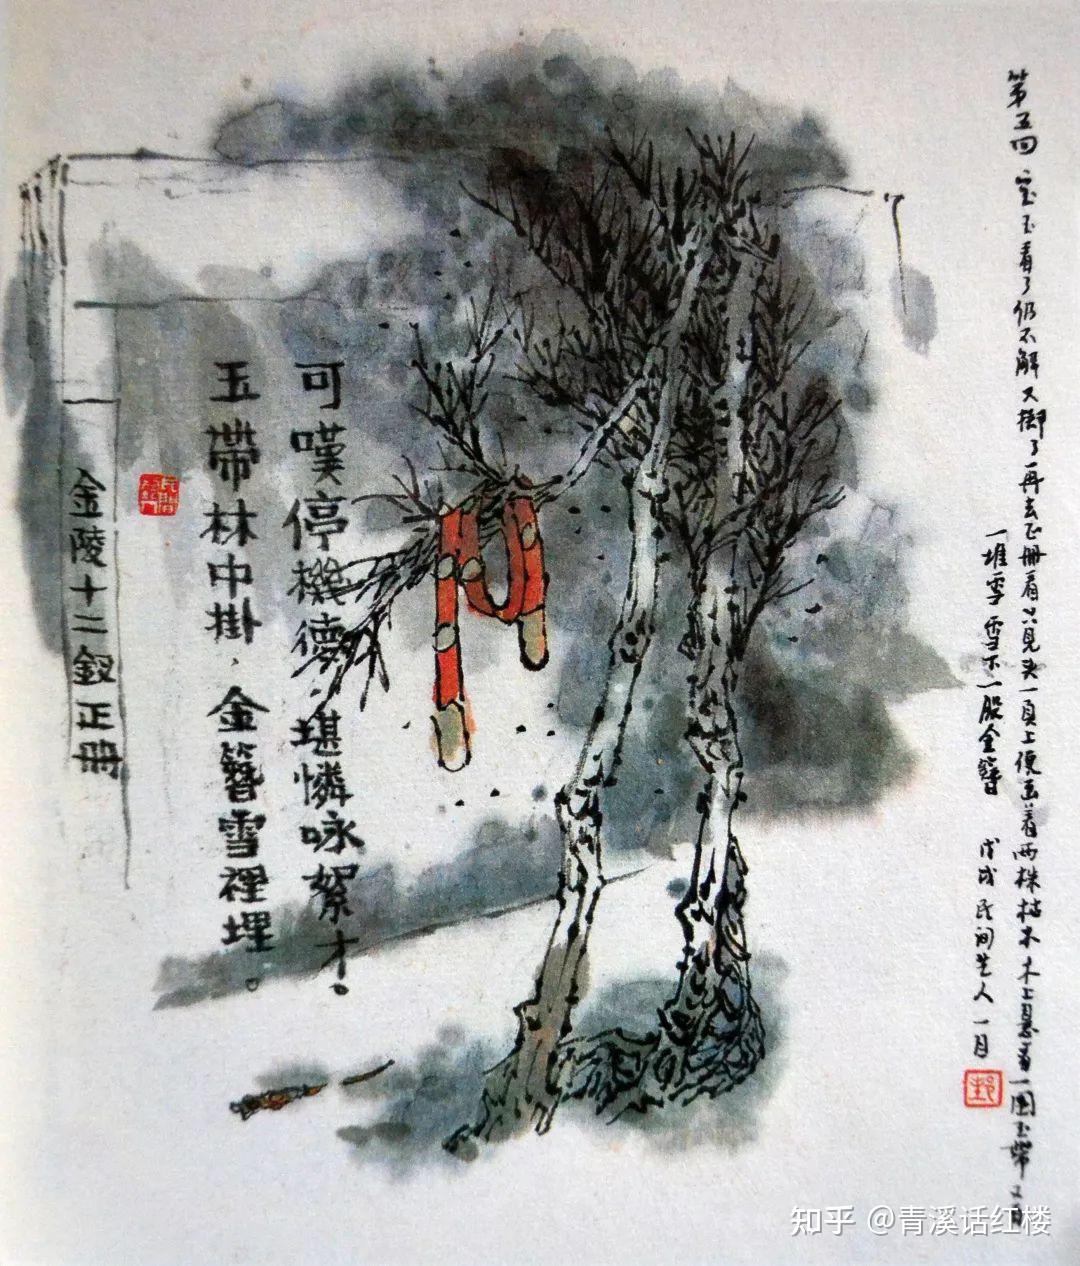 第五回 宝玉看了仍不解又擲了再去正册看只見头一頁上便画着两株枯木木上悬着一围玉带又有
一堆雪雪下一股金簪 戊戌民间艺人一月
可嘆停機德，堪憐咏絮才。
玉帶林中掛，金簪雪裡埋。
金陵十二釵正冊
知乎 @青溪话红楼